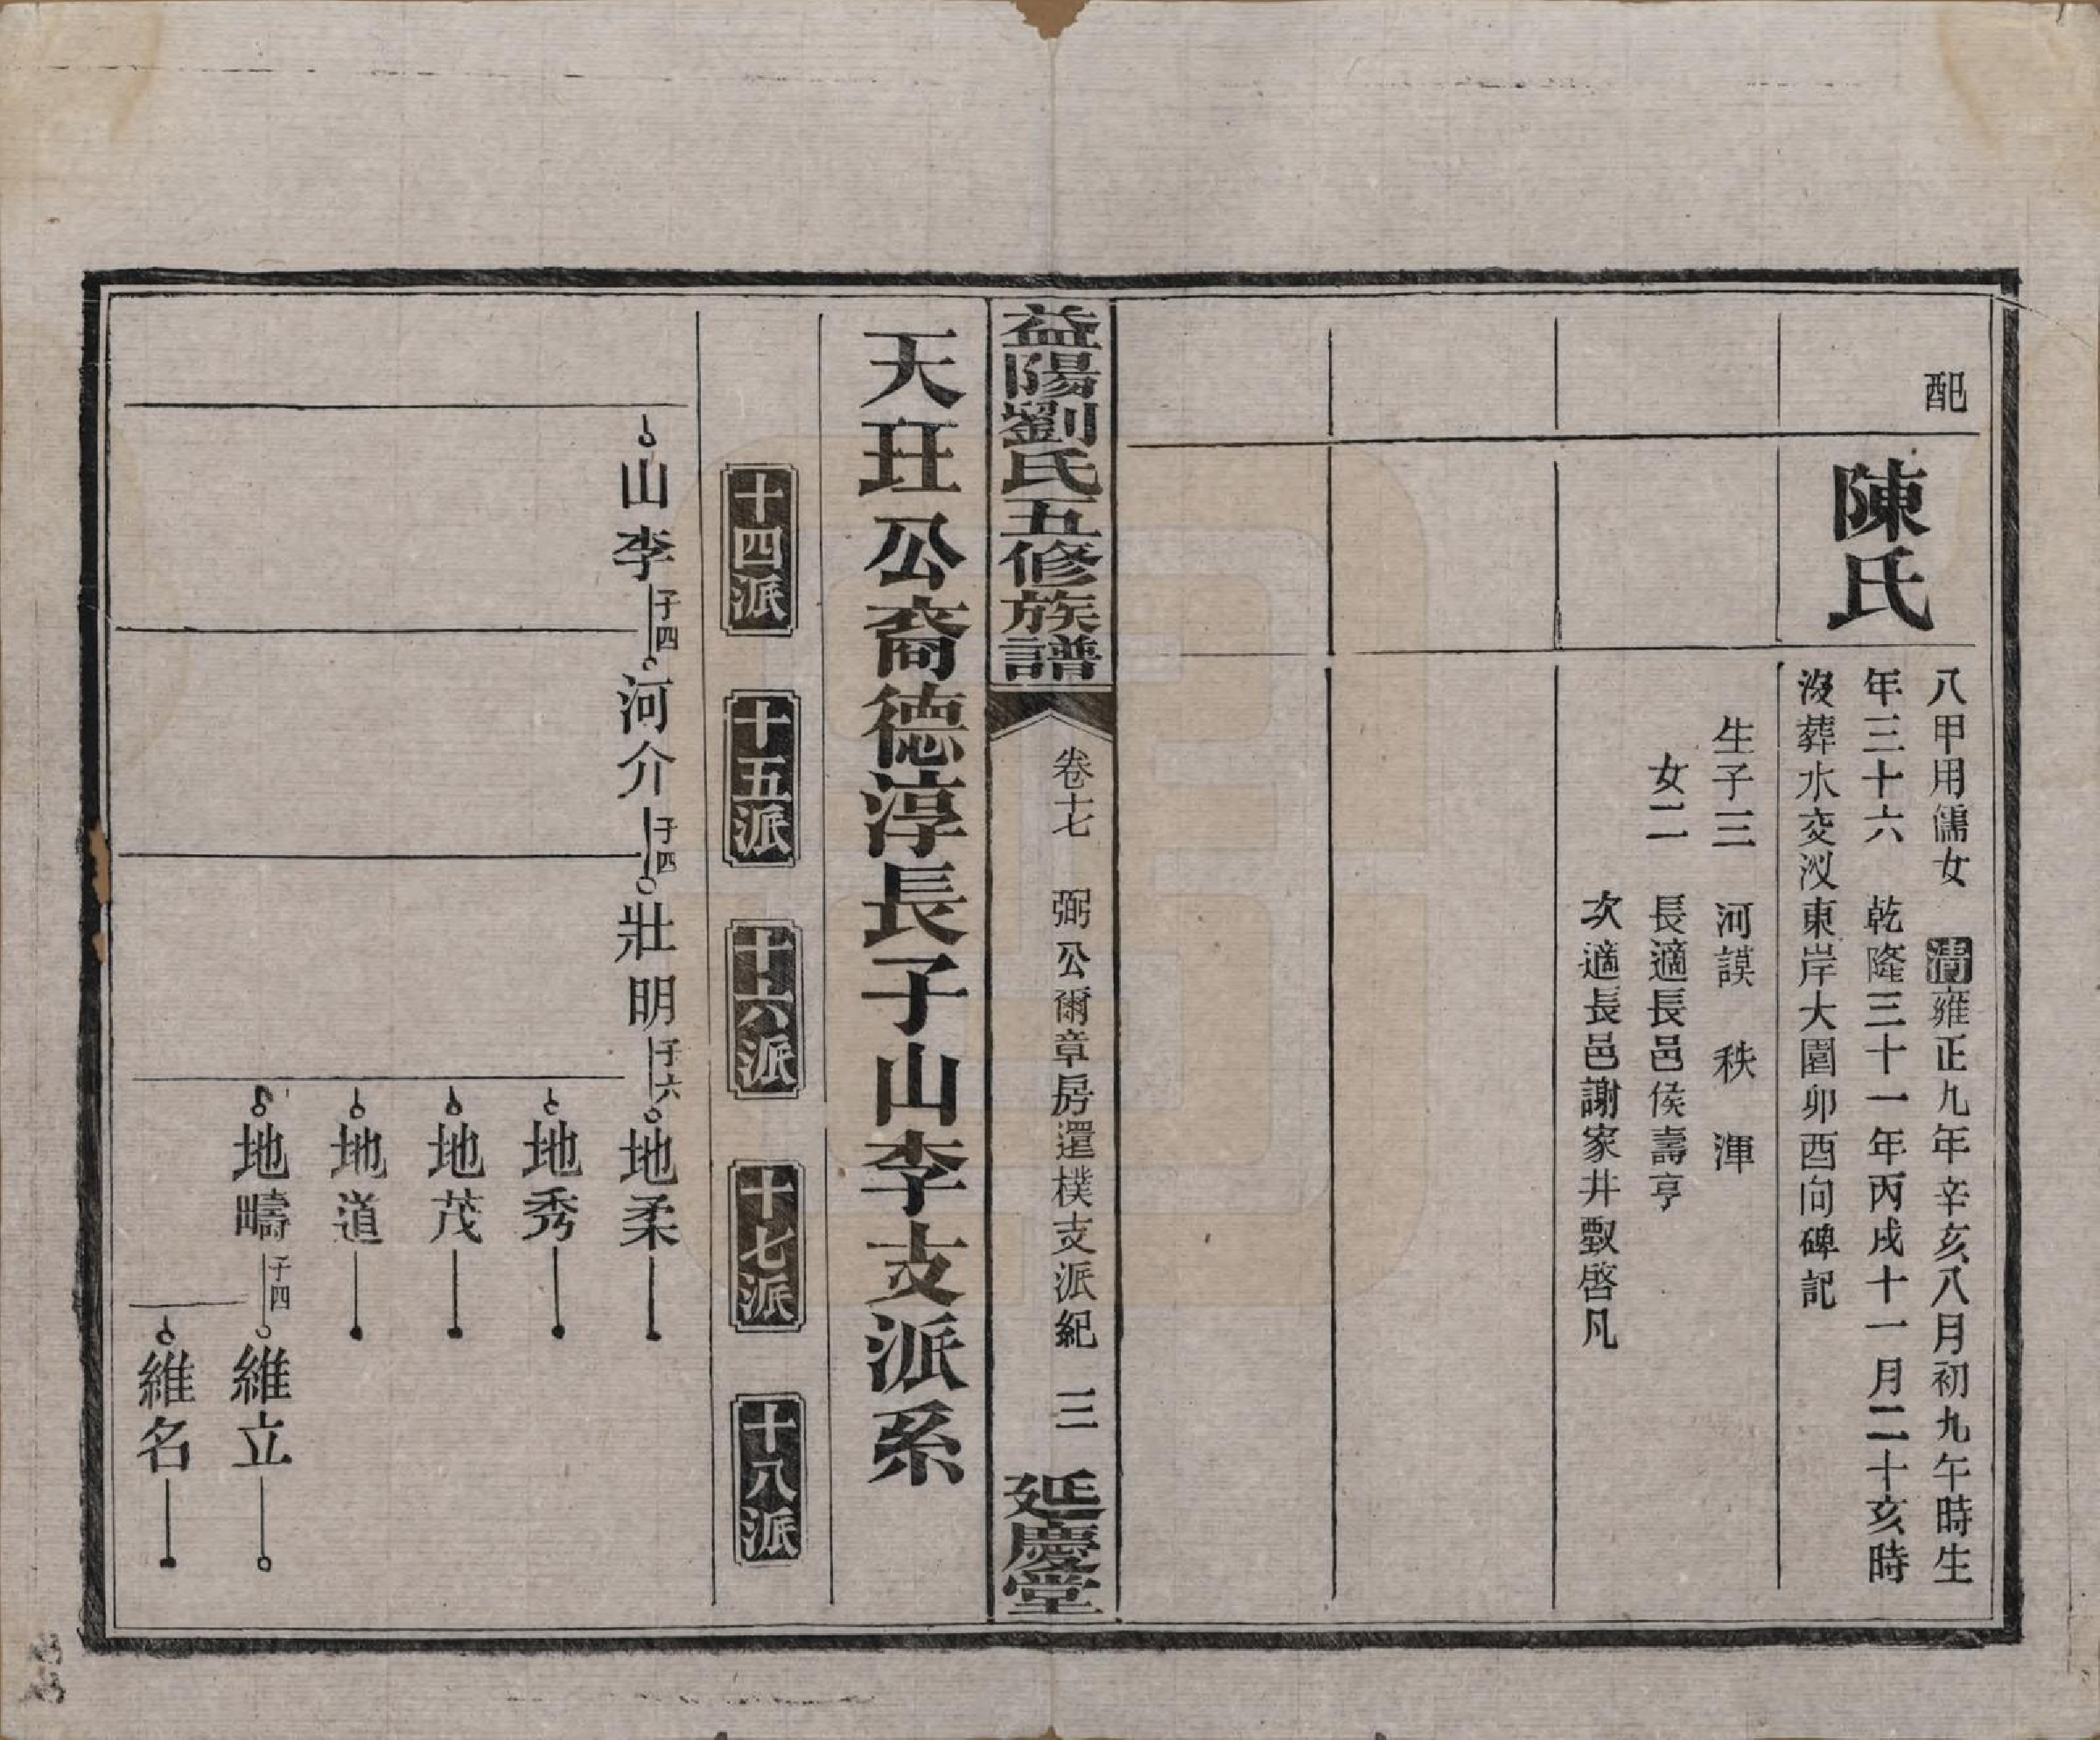 配
陳氏
八甲用儒女　清雍正九年辛亥八月初九午時生
年三十六　乾隆三十一年丙戌十一月二十亥時
沒葬水交汊東岸大園卯酉向碑記
生子三　河謨　秩　渾
女二　長適長邑侯壽亨
次適長邑謝家井甄啓凡
益陽劉氏五修族譜
卷十七　弼公爾章房還樸支派紀　三
延慶堂
天玨公裔德淳長子山李支派系
十四派　十五派　十六派　十七派　十八派
山李　子四　河介　子四　壯明　子六　地柔
地秀
地茂
地道
地疇　子四　維立
維名